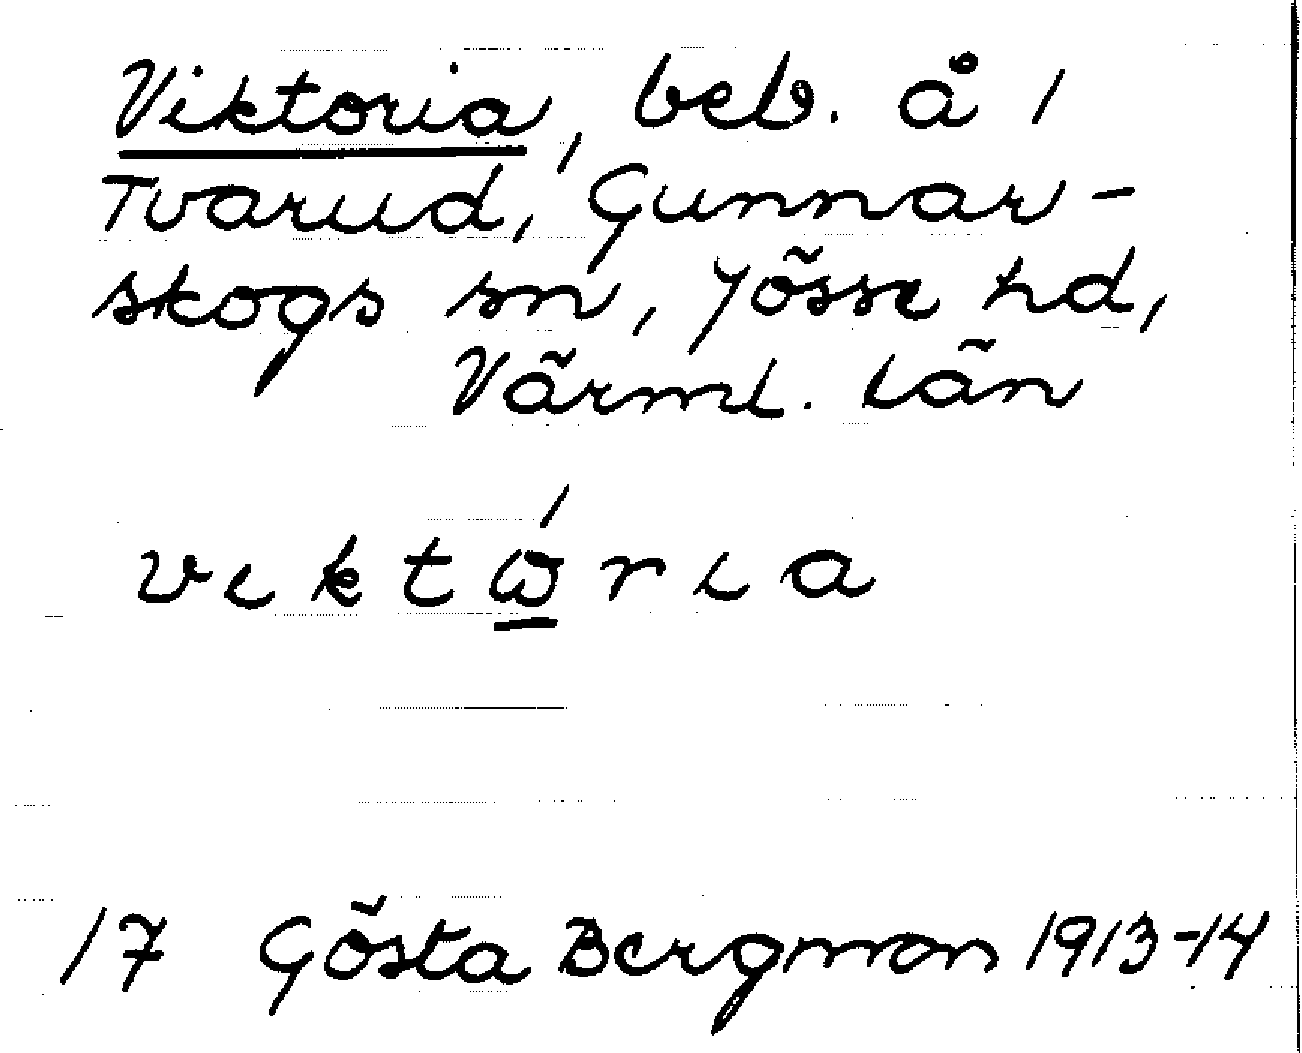 Viktoria, beb. å 1
Tvarud, Gunnar-
skogs sn, Jösse hd,
Värml. län
viktώria
17 Gösta Bergman 1913-14